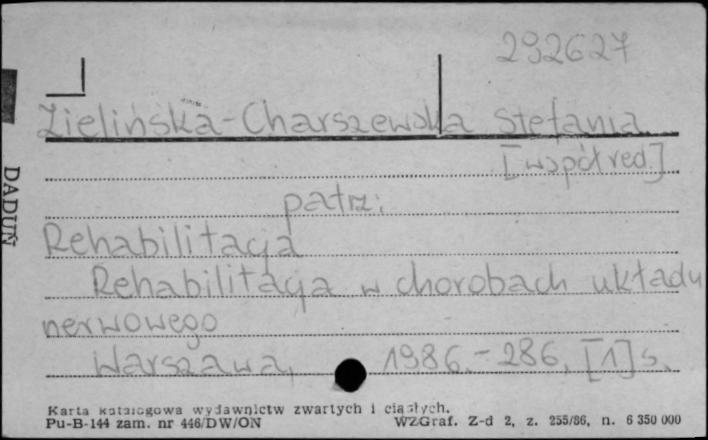 292627
Zielińska-Charszewska Stefania
[współred.]
patrz:
Rehabilitacja
Rehabilitacja w chorobach układu
nerwowego
Warszawa, 1986.-286, [1]s.
DADUŃ
Karta katalogowa wydawnictw zwartych i ciągłych.
Pu-B-144 zam. nr 446/DW/ON WZGraf. Z-d 2, z. 255/86, n. 6 350 000